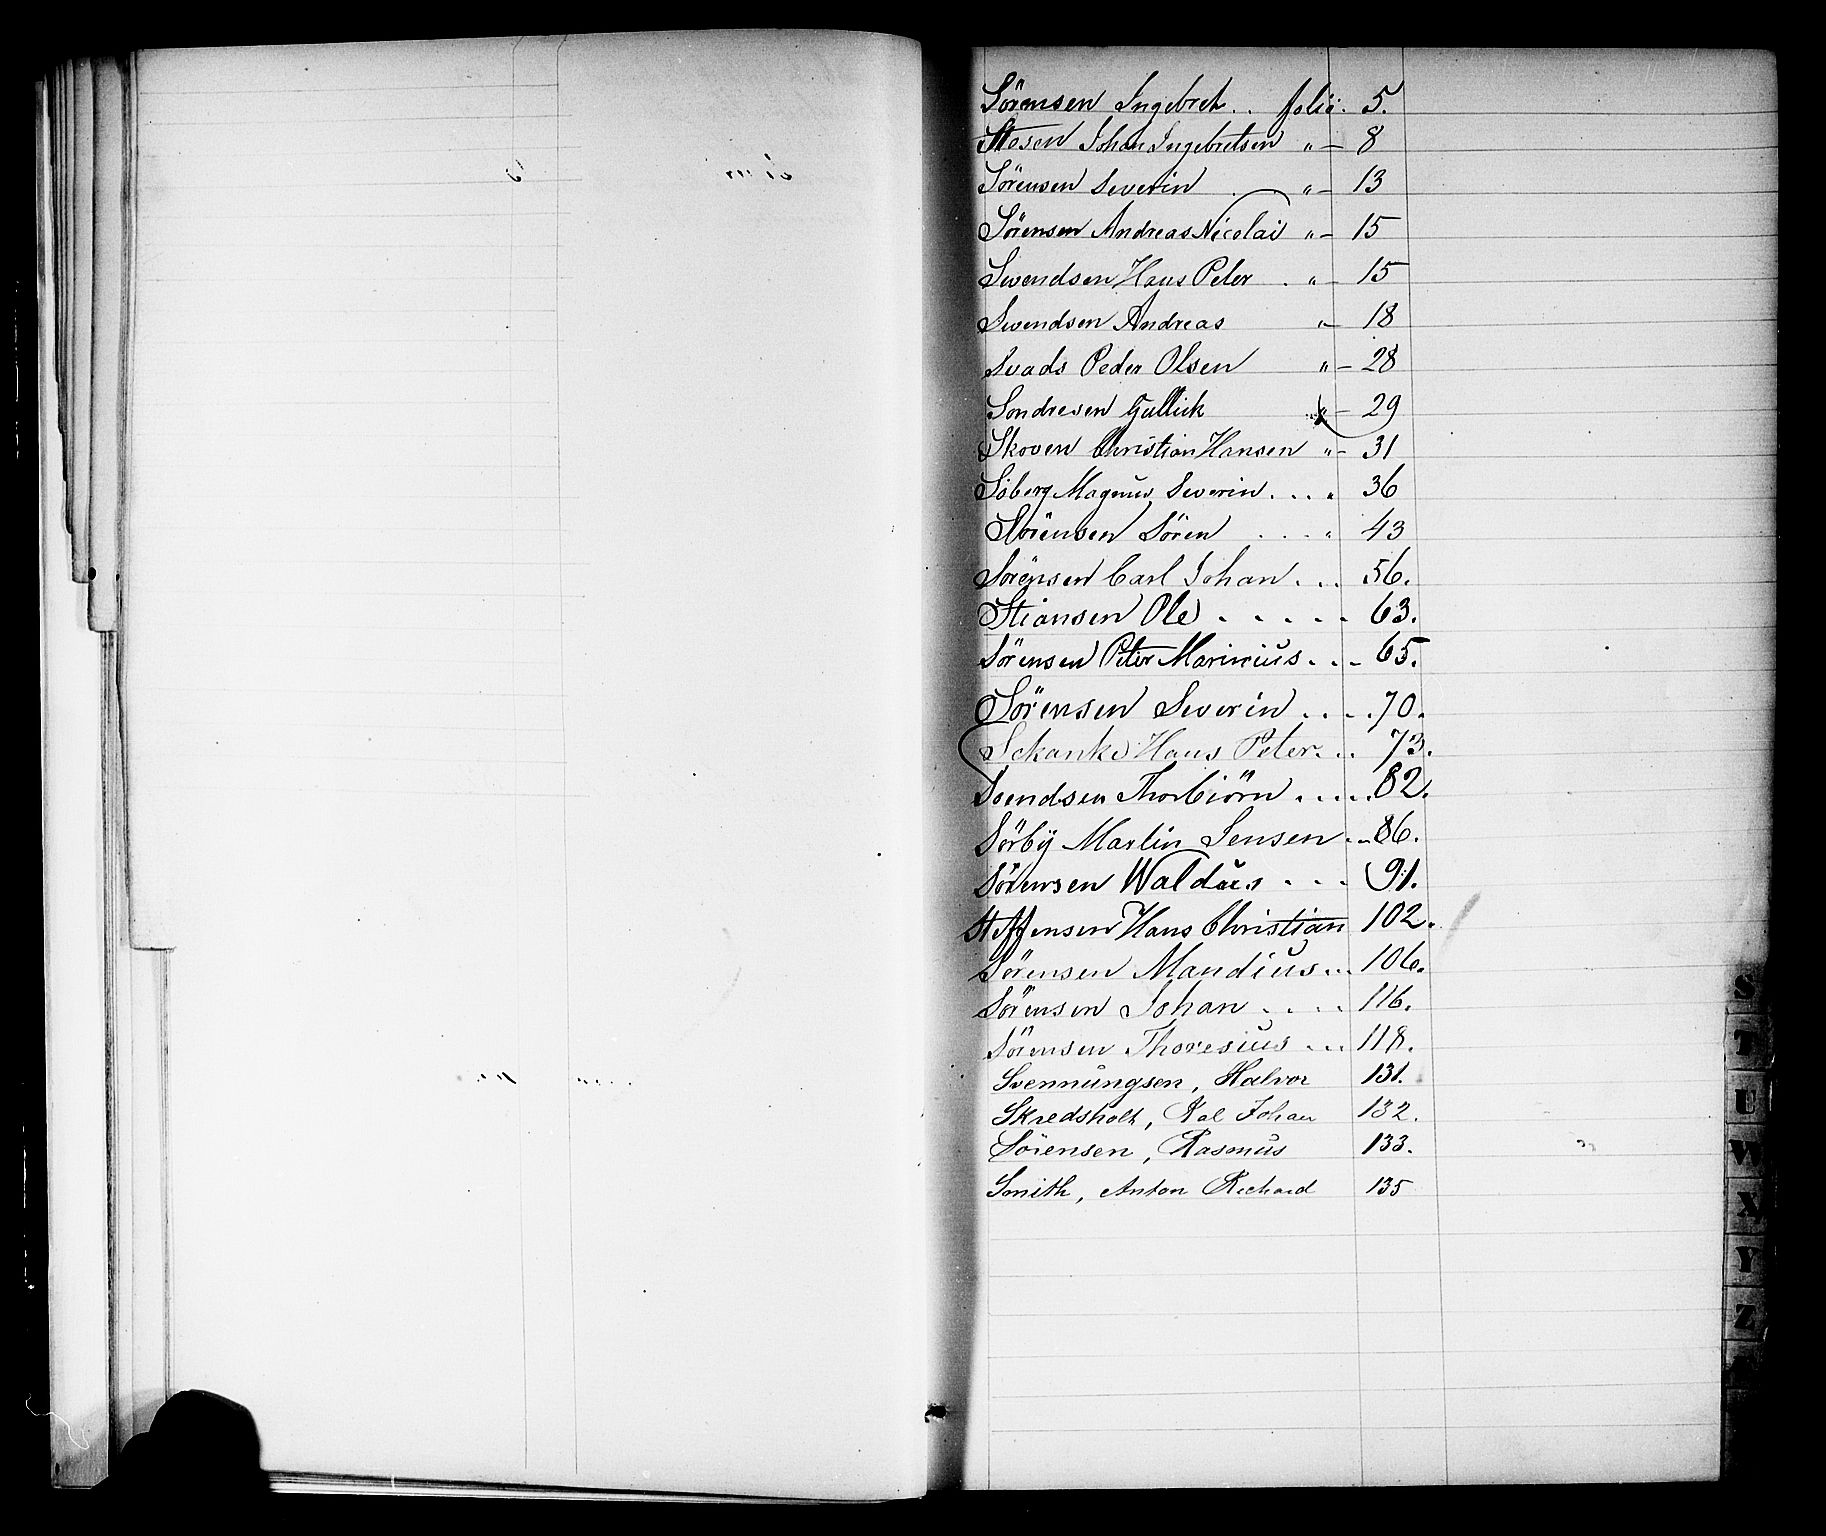 Sörensen Ingebret .. folio. 5.
Stesen Johan Ingebretsen " — 8
Sörensen Severin . " — 13
Sörensen Andreas Nicolai " — 15
Swendsen Hans Peter . " — 15
Swendsen Andreas " — 18
Svads Peder Olsen " — 28
Sondresen Gullick " — 29
Skoven Christian Hansen " — 31
Söberg Magnus Severin . . . " 36
Sörensen Sören . . . " 43
Sörensen Carl Johan . . . 56.
Stiansen Ole . . . . . 63.
Sörensen Peter Marinius . . . 65.
Sörensen Severin . . . . 70.
Schanke Hans Peter . . . 73.
Svendsen Thorbiörn . . . . . 82.
Sörby Martin Jensen . . . 86.
Sörensen Waldus . . . 91.
Steffensen Hans Christian 102.
Sörensen Mandius . . . 106.
Sörensen Johan . . . . 116.
Sörensen Thoresius . . . 118.
Svennungsen, Halvor 131.
Skredsholt, Kal Johan 132.
Sörensen, Rasmus 133.
Smith, Anton Richard 135
S
T
U
W
X
Y
Z